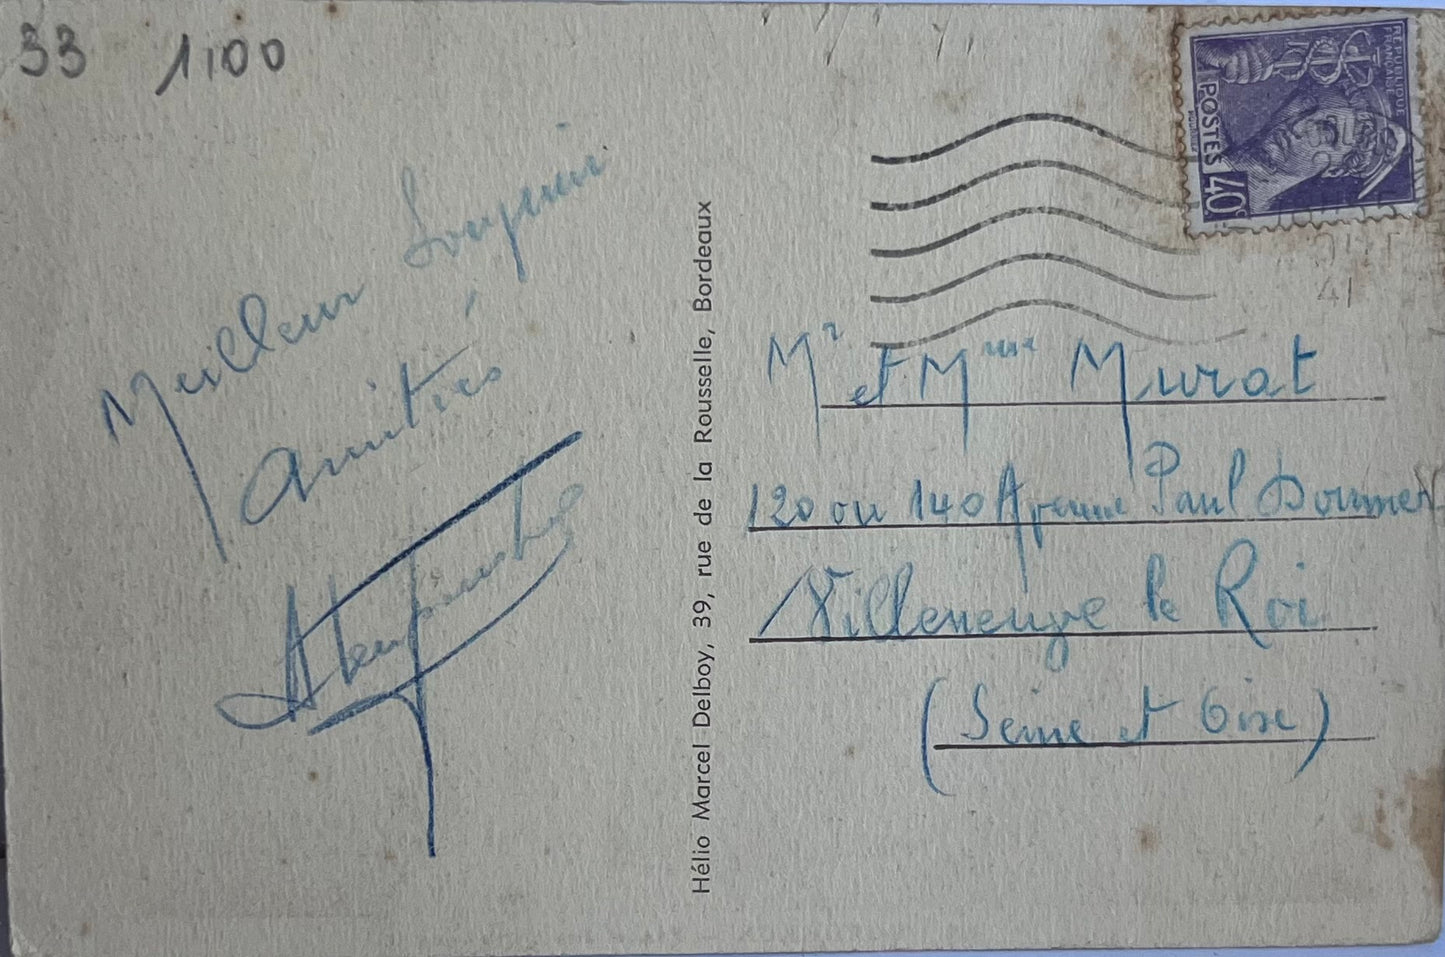 33 1,00
Meilleur Souvenir
Amitiés
Hélio Marcel Delboy, 39, rue de la Rousselle, Bordeaux
REPUBLIQUE
FRANÇAISE
POSTES
40c
41
Mr et Mme Murat
120 ou 140 Avenue Paul Doumer
Villeneuve le Roi
(Seine et Oise)